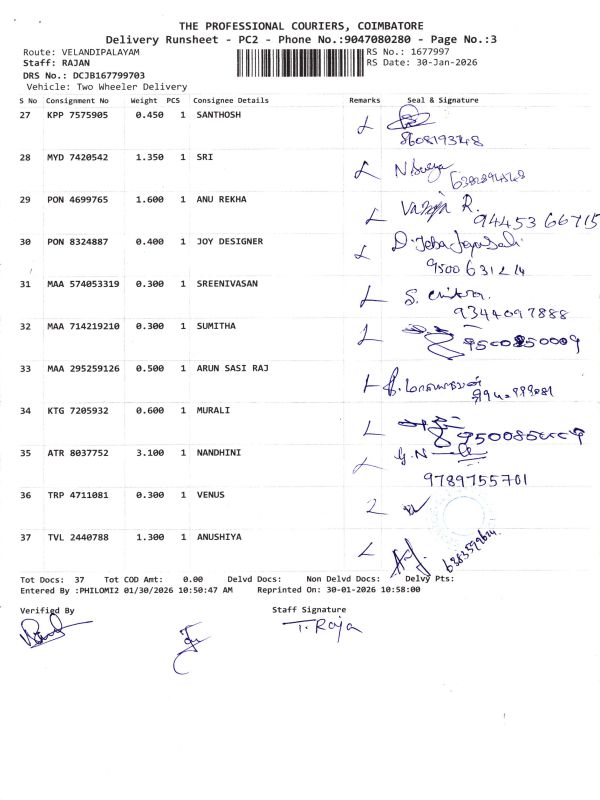 THE PROFESSIONAL COURIERS, COIMBATORE
Delivery Runsheet - PC2 - Phone No.:9047080280 - Page No.:3
Route: VELANDIPALAYAM RS No.: 1677997
Staff: RAJAN RS Date: 30-Jan-2026
DRS No.: DCJB167799703
Vehicle: Two Wheeler Delivery
S No Consignment No Weight PCS Consignee Details Remarks Seal & Signature
27 KPP 7575905 0.450 1 SANTHOSH
28 MYD 7420542 1.350 1 SRI
29 PON 4699765 1.600 1 ANU REKHA
R.
94453 66715
30 PON 8324887 0.400 1 JOY DESIGNER
31 MAA 574053319 0.300 1 SREENIVASAN
9344097888
32 MAA 714219210 0.300 1 SUMITHA
33 MAA 295259126 0.500 1 ARUN SASI RAJ
34 KTG 7205932 0.600 1 MURALI
35 ATR 8037752 3.100 1 NANDHINI
G.N
9789755701
36 TRP 4711081 0.300 1 VENUS
37 TVL 2440788 1.300 1 ANUSHIYA
Tot Docs: 37 Tot COD Amt: 0.00 Delvd Docs: Non Delvd Docs: Delvy Pts:
Entered By :PHILOMI2 01/30/2026 10:50:47 AM Reprinted On: 30-01-2026 10:58:00
Verified By Staff Signature
T. Raja